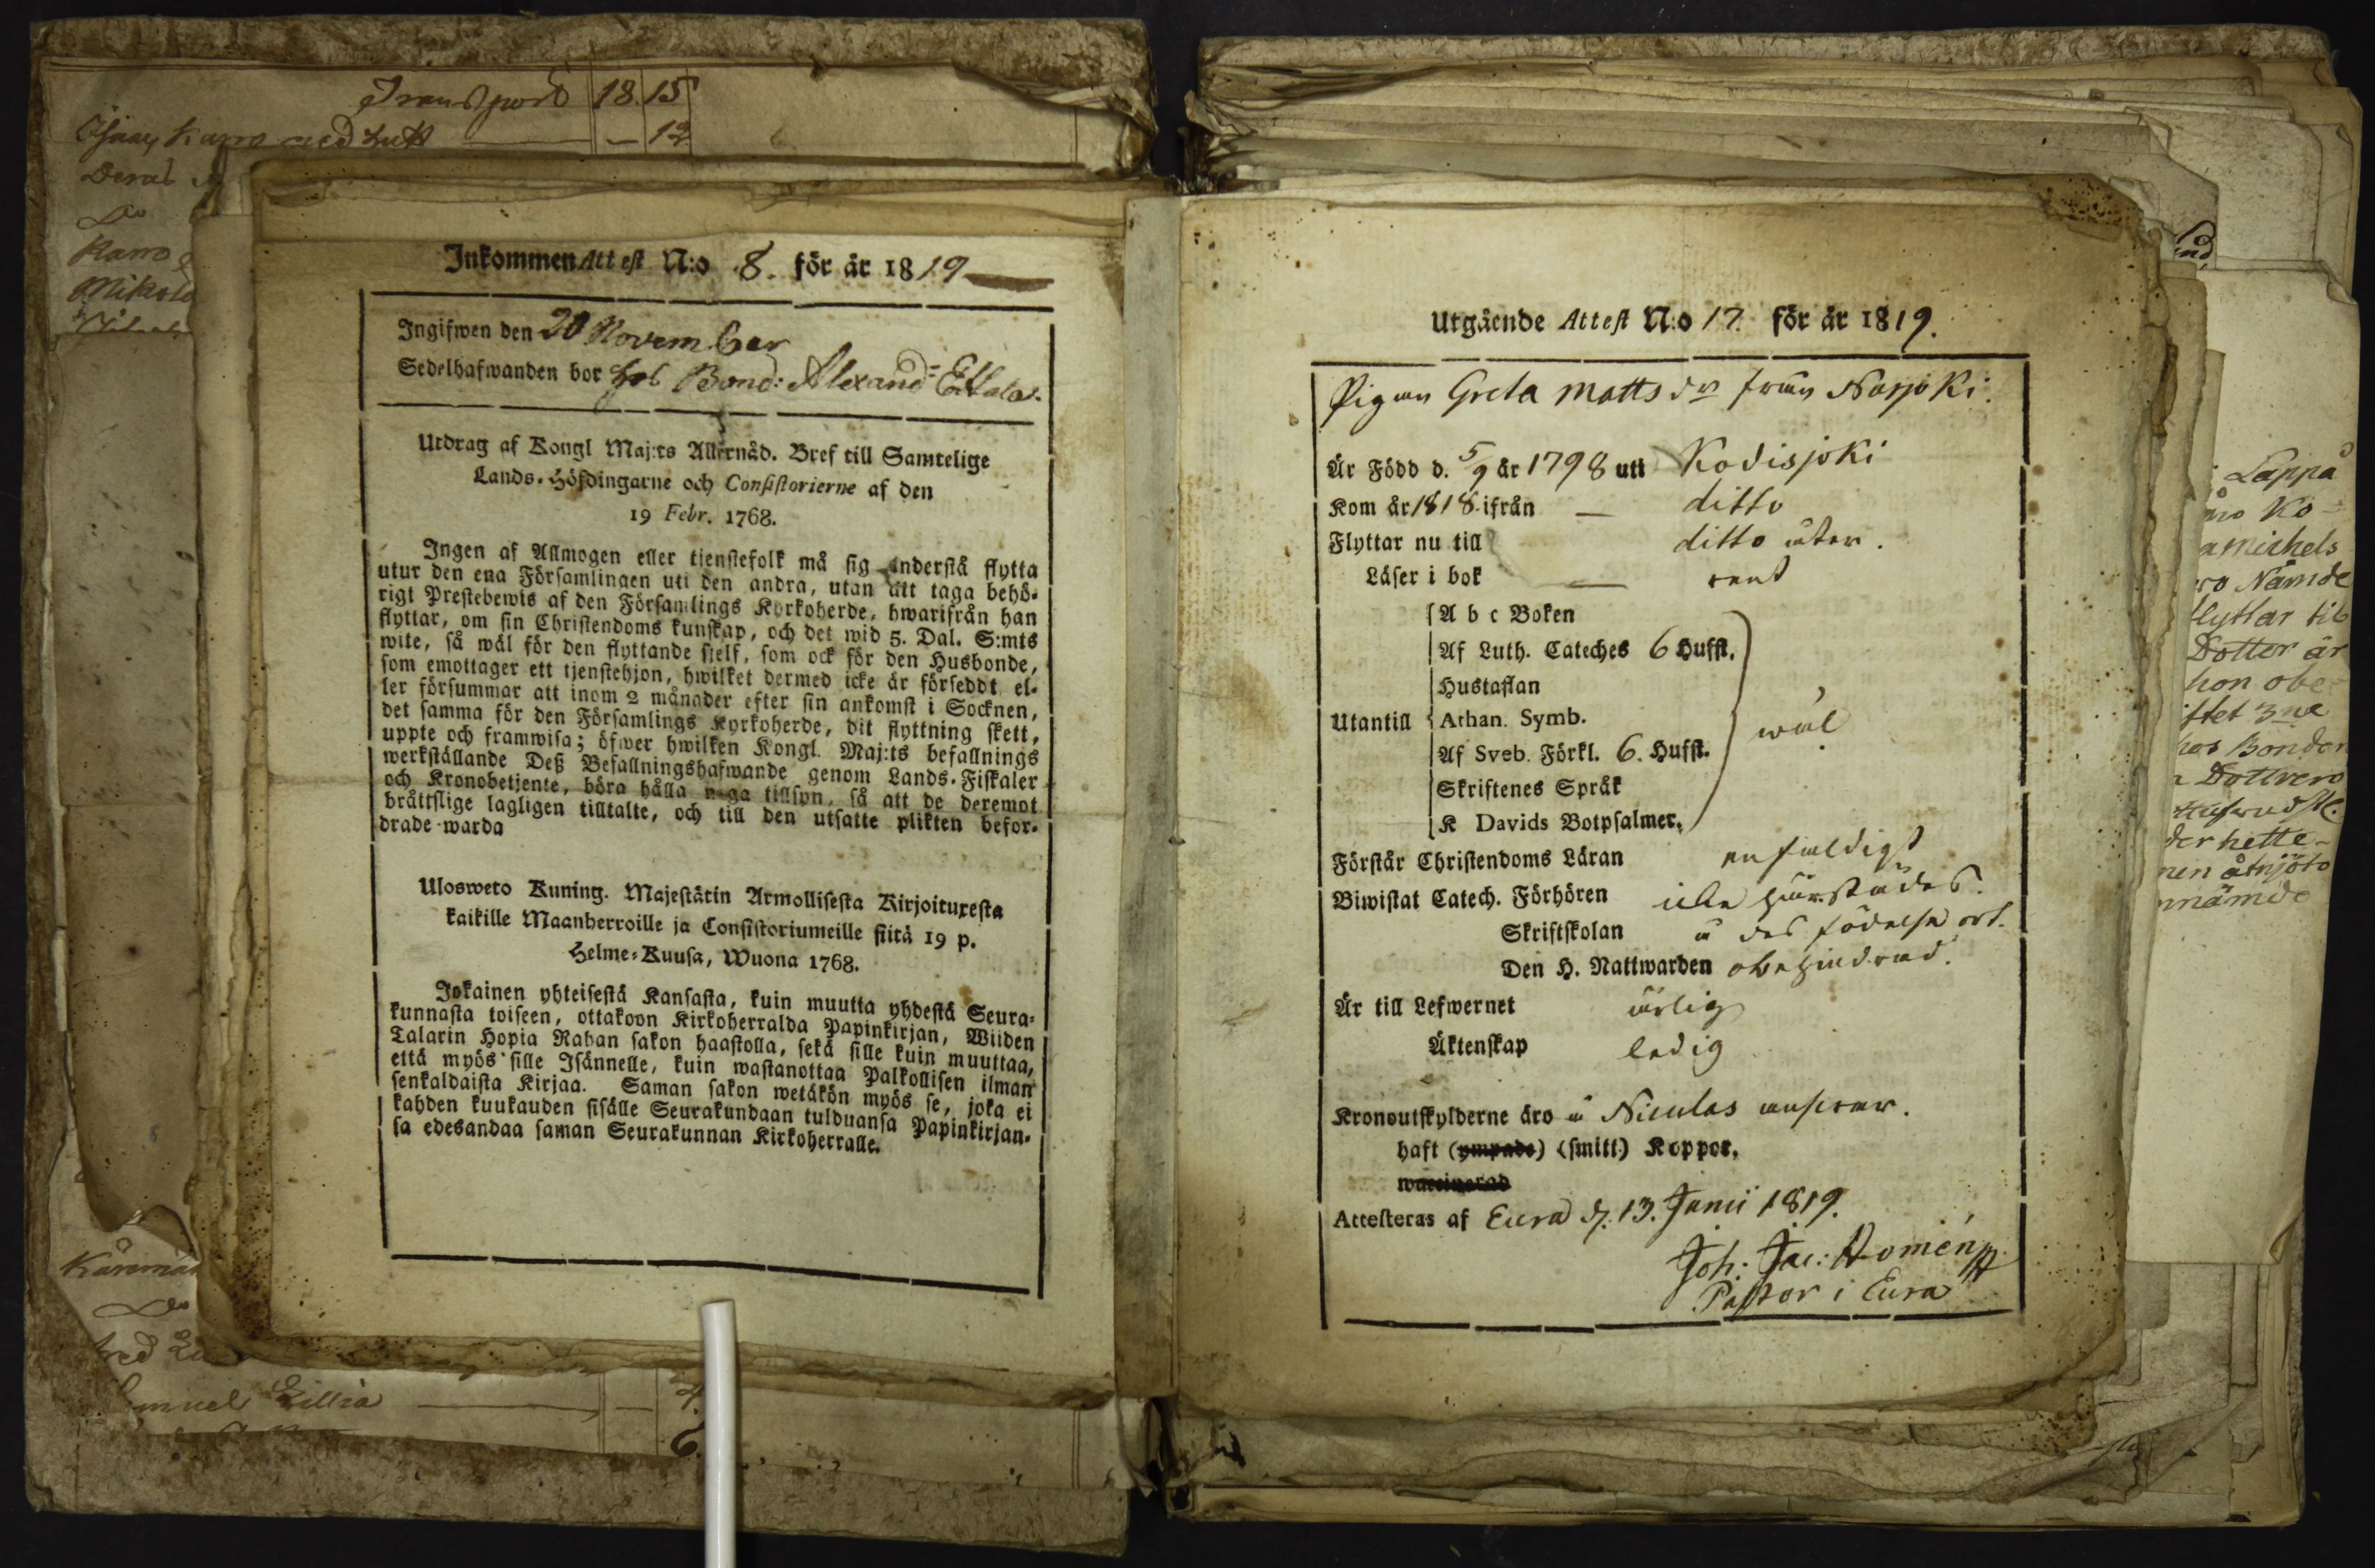 Transport 18. 15
med hust — 12
Deras
Do
Karro
Mikola
Inkommen Attest N:o 8. för år 1819
Ingifwen den 20 November
Sedelhafwanden bor hos Bond: Alexand:
Utdrag af Kongl Maj:ts Allernåd. Bref till Samtelige
Lands-Höfdingarne och Consistorierne af den
19 Febr. 1768.
Ingen af Allmogen eller tjenstefolk må sig understå flytta
utur den ena Församlingen uti den andra, utan att taga behö-
rigt Prestebewis af den Församlings Kyrkoherde, hwarifrån han
flyttar, om sin Christendoms kunskap, och det wid 5. Dal. S:mts
wite, så wäl för den flyttande sjelf, som ock för den Husbonde,
som emottager ett tjenstehjon, hwilket dermed icke är förseddt el-
ler försummar att inom 2 månader efter sin ankomst i Socknen,
det samma för den Församlings Kyrkoherde, dit flyttning skett,
uppte och framwisa; öfwer hwilken Kongl. Maj:ts befallnings
werkställande Deß Befallningshafwande genom Lands-Fiskaler
och Kronobetjente, böra hålla noga tillsyn, så att de deremot
bråttslige lagligen tilltalte, och till den utsatte plikten befor-
drade warda
Ulosweto Kuning. Majestätin Armollisesta Kirjoituxesta
kaikille Maanherroille ja Consistoriumeille siitä 19 p.
Helme-Kuusa, Wuona 1768.
Jokainen yhteisestä Kansasta, kuin muutta yhdestä Seura-
kunnasta toiseen, ottakoon Kirkoherralda Papinkirjan, Wiiden
Talarin Hopia Rahan sakon haastolla, sekä sille kuin muuttaa,
että myös sille Isännelle, kuin wastanottaa Palkollisen ilman
senkaldaista Kirjaa. Saman sakon wetäkön myös se, joka ei
kahden kuukauden sisälle Seurakundaan tulduansa Papinkirjan-
sa edesandaa saman Seurakunnan Kirkoherralle.
Do
Lillia
6.
Utgående Attest N:o 17. för år 1819.
Pigan Greta Matts dr från Narjoki.
Är Född d. 5/9 år 1798 uti Kodisjoki
Kom år 1818 ifrån — ditto
Flyttar nu till ditto åter.
Läser i bok — rent
A b c Boken
Af Luth. Cateches 6 Hufst.
Hustaflan
Utantill Athan. Symb. wäl
Af Sveb. Förkl. 6. Hufst.
Skriftenes Språk
K Davids Botpsalmer.
Förstår Christendoms Läran enfaldigt
Biwistat Catech. Förhören icke härstädes.
Skriftskolan å des födelse ort.
Den H. Nattwarden obehindrad.
Är till Lefwernet ärlig
Äktenskap ledig
Kronoutskylderne äro å Niculas
haft (ympade) (smitt) Koppor.
waccinerad
Attesteras af Eura d. 13. Junii 1819.
Joh: Jac: Homén
Pastor i Eura
Lappa
Ko-
michels
Nämde
flyttar til
Dotter är
hon obe-
iftet 3ne
hos Bonden
Dottren
der hette-
nen åtnjöto
nämde